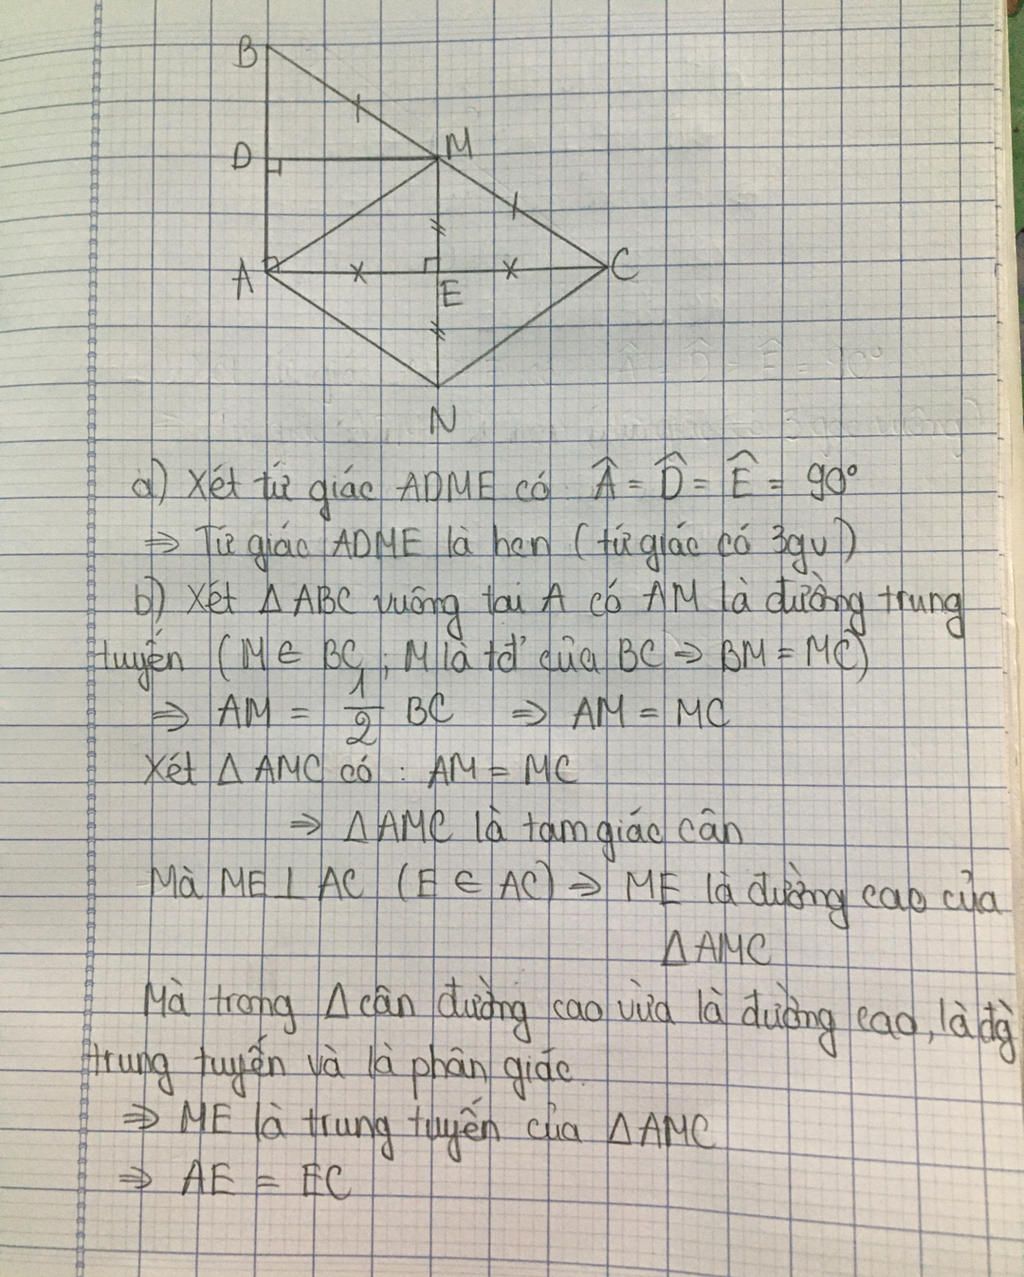 B
D
M
A
E
C
N
a) Xét tứ giác ADME có Â = D̂ = Ê = 90°
⇒ Tứ giác ADME là hcn (tứ giác có 3gv)
b) Xét Δ ABC vuông tại A có AM là đường trung
tuyến (M ∈ BC ; M là tđ của BC ⇒ BM = MC)
⇒ AM = 1/2 BC ⇒ AM = MC
Xét Δ AMC có : AM = MC
⇒ Δ AMC là tam giác cân
Mà ME ⊥ AC (E ∈ AC) ⇒ ME là đường cao của
Δ AMC
Mà trong Δ cân đường cao vừa là đường cao, là đg
trung tuyến và là phân giác.
⇒ ME là trung tuyến của Δ AMC
⇒ AE = EC